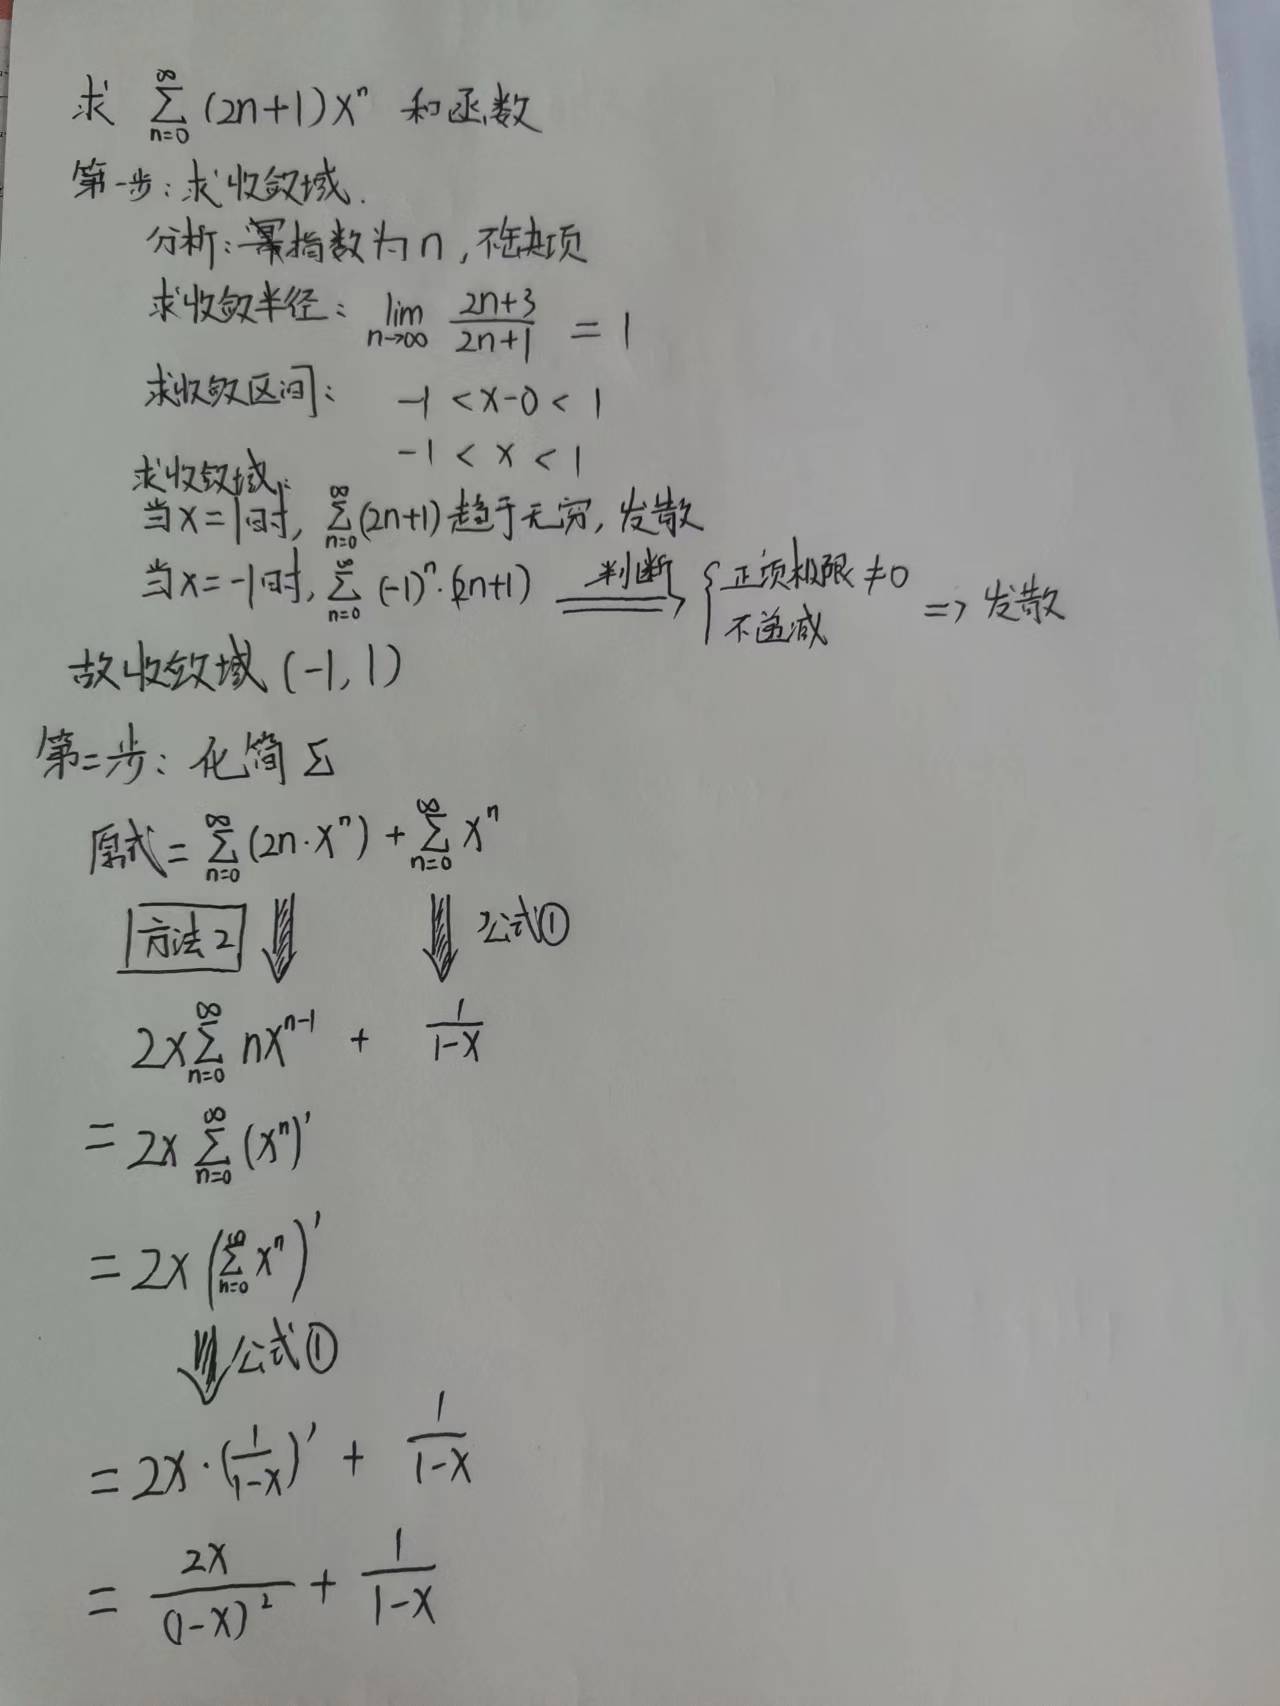 求 ∑_{n=0}^{∞} (2n+1)x^n 和函数
第一步:求收敛域.
分析:幂指数为n,不缺项
求收敛半径: lim_{n→∞} (2n+3)/(2n+1) = 1
求收敛区间: -1 < x-0 < 1
-1 < x < 1
求收敛域:
当x=1时, ∑_{n=0}^{∞}(2n+1)趋于无穷,发散
当x=-1时, ∑_{n=0}^{∞} (-1)^n·(2n+1) 判断 { 正项极限≠0 不递减 => 发散
故收敛域(-1,1)
第二步:化简∑
原式= ∑_{n=0}^{∞} (2n·x^n) + ∑_{n=0}^{∞} x^n
方法2 ⇓ ⇓ 公式①
2x∑_{n=0}^{∞} nx^{n-1} + 1/(1-x)
= 2x ∑_{n=0}^{∞} (x^n)'
= 2x (∑_{n=0}^{∞} x^n)'
⇓ 公式①
= 2x·(1/(1-x))' + 1/(1-x)
= 2x/(1-x)^2 + 1/(1-x)